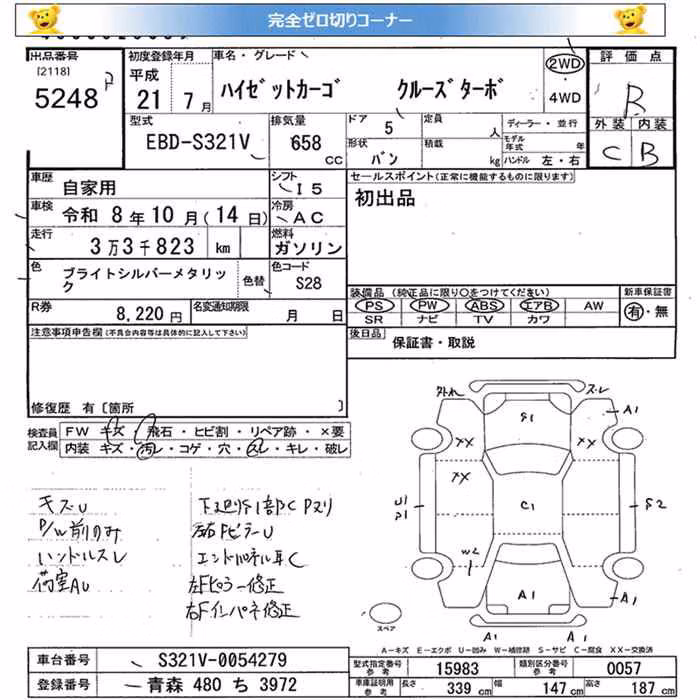 完全ゼロ切りコーナー
出品番号
[2118]
5248
初度登録年月
平成
21年 7月
車名・グレード
ハイゼットカーゴ クルーズターボ
2WD
4WD
評価点
R
外装 内装
C B
型式
EBD-S321V
排気量
658
CC
ドア 5
形状
バン
定員 人
積載 kg
ディーラー・並行
モデル年式 年
ハンドル 左・右
車歴
自家用
シフト
I5
車検
令和 8年10月(14日)
冷房
AC
走行
3万3千823 km
燃料
ガソリン
色
ブライトシルバーメタリック
色替
色コード
S28
R券
8,220円
名変通知期限
月 日
セールスポイント(正常に機能するものに限ります)
初出品
装備品(純正品に限り〇をつけてください)
PS PW ABS エアB AW
SR ナビ TV カワ
新車保証書
有・無
後日品
保証書・取説
注意事項申告欄(不具合内容等は具体的に記入して下さい)
修復歴 有〔箇所 〕
検査員記入欄
FW キズ・飛石・ヒビ割・リペア跡・×要
内装 キズ・汚レ・コゲ・穴・スレ・キレ・破レ
キズU
P/W前のみ
ハンドルスレ
荷室AU
エンドパネル耳C
左Fピラー修正
右Fインパネ修正
外れ
ズレ
S1
A1
XX
XX
XX
U1
S1
C1
S2
W2
A1
A1
A1 A1
スペア
A−キズ E−エクボ U−凹み W−補修跡 S−サビ C−腐食 XX−交換済
車台番号
S321V-0054279
登録番号
青森 480 ち 3972
型式指定番号
参考
15983
類別区分番号
参考
0057
車庫証明用
参考
長さ 339 cm
幅 147 cm
高さ 187 cm